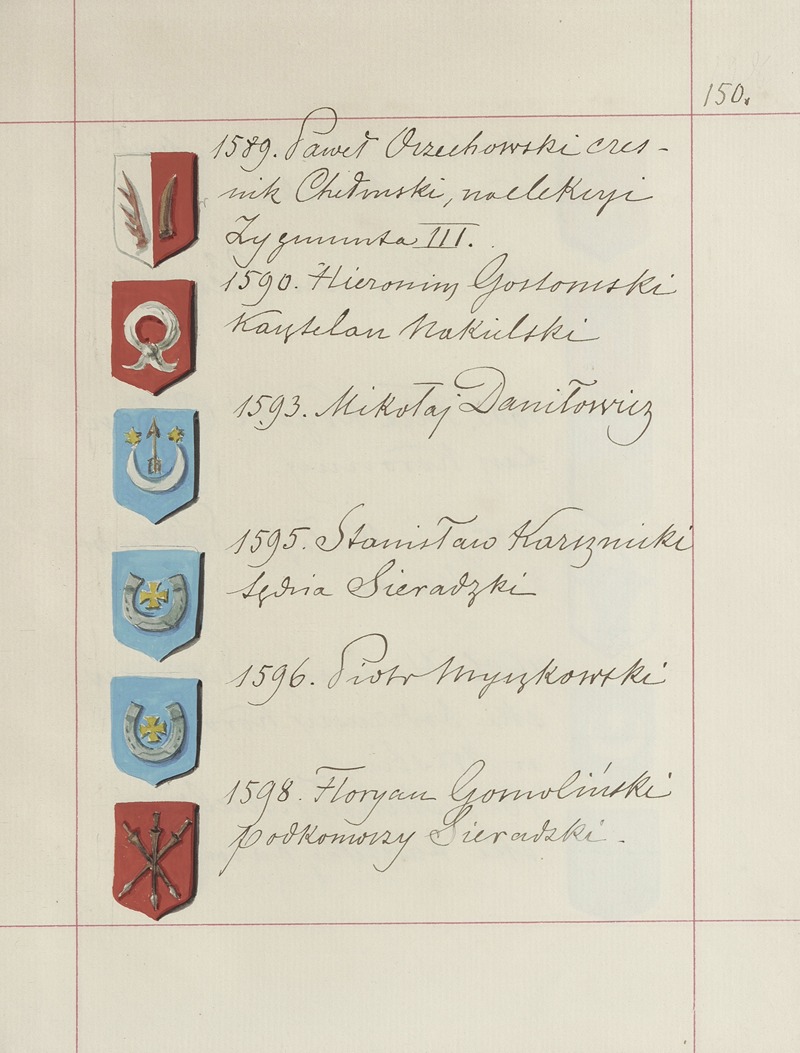 150.
1589. Paweł Orzechowski czes-
nik Chełmski, na elekcyi
Zygmunta III.
1590. Hieronim Gostomski
Kasztelan Nakielski
1593. Mikołaj Daniłowicz
1595. Stanisław Karsznicki
Sędzia Sieradzki
1596. Piotr Myszkowski
1598. Floryan Gomoliński
podkomorzy Sieradzki.